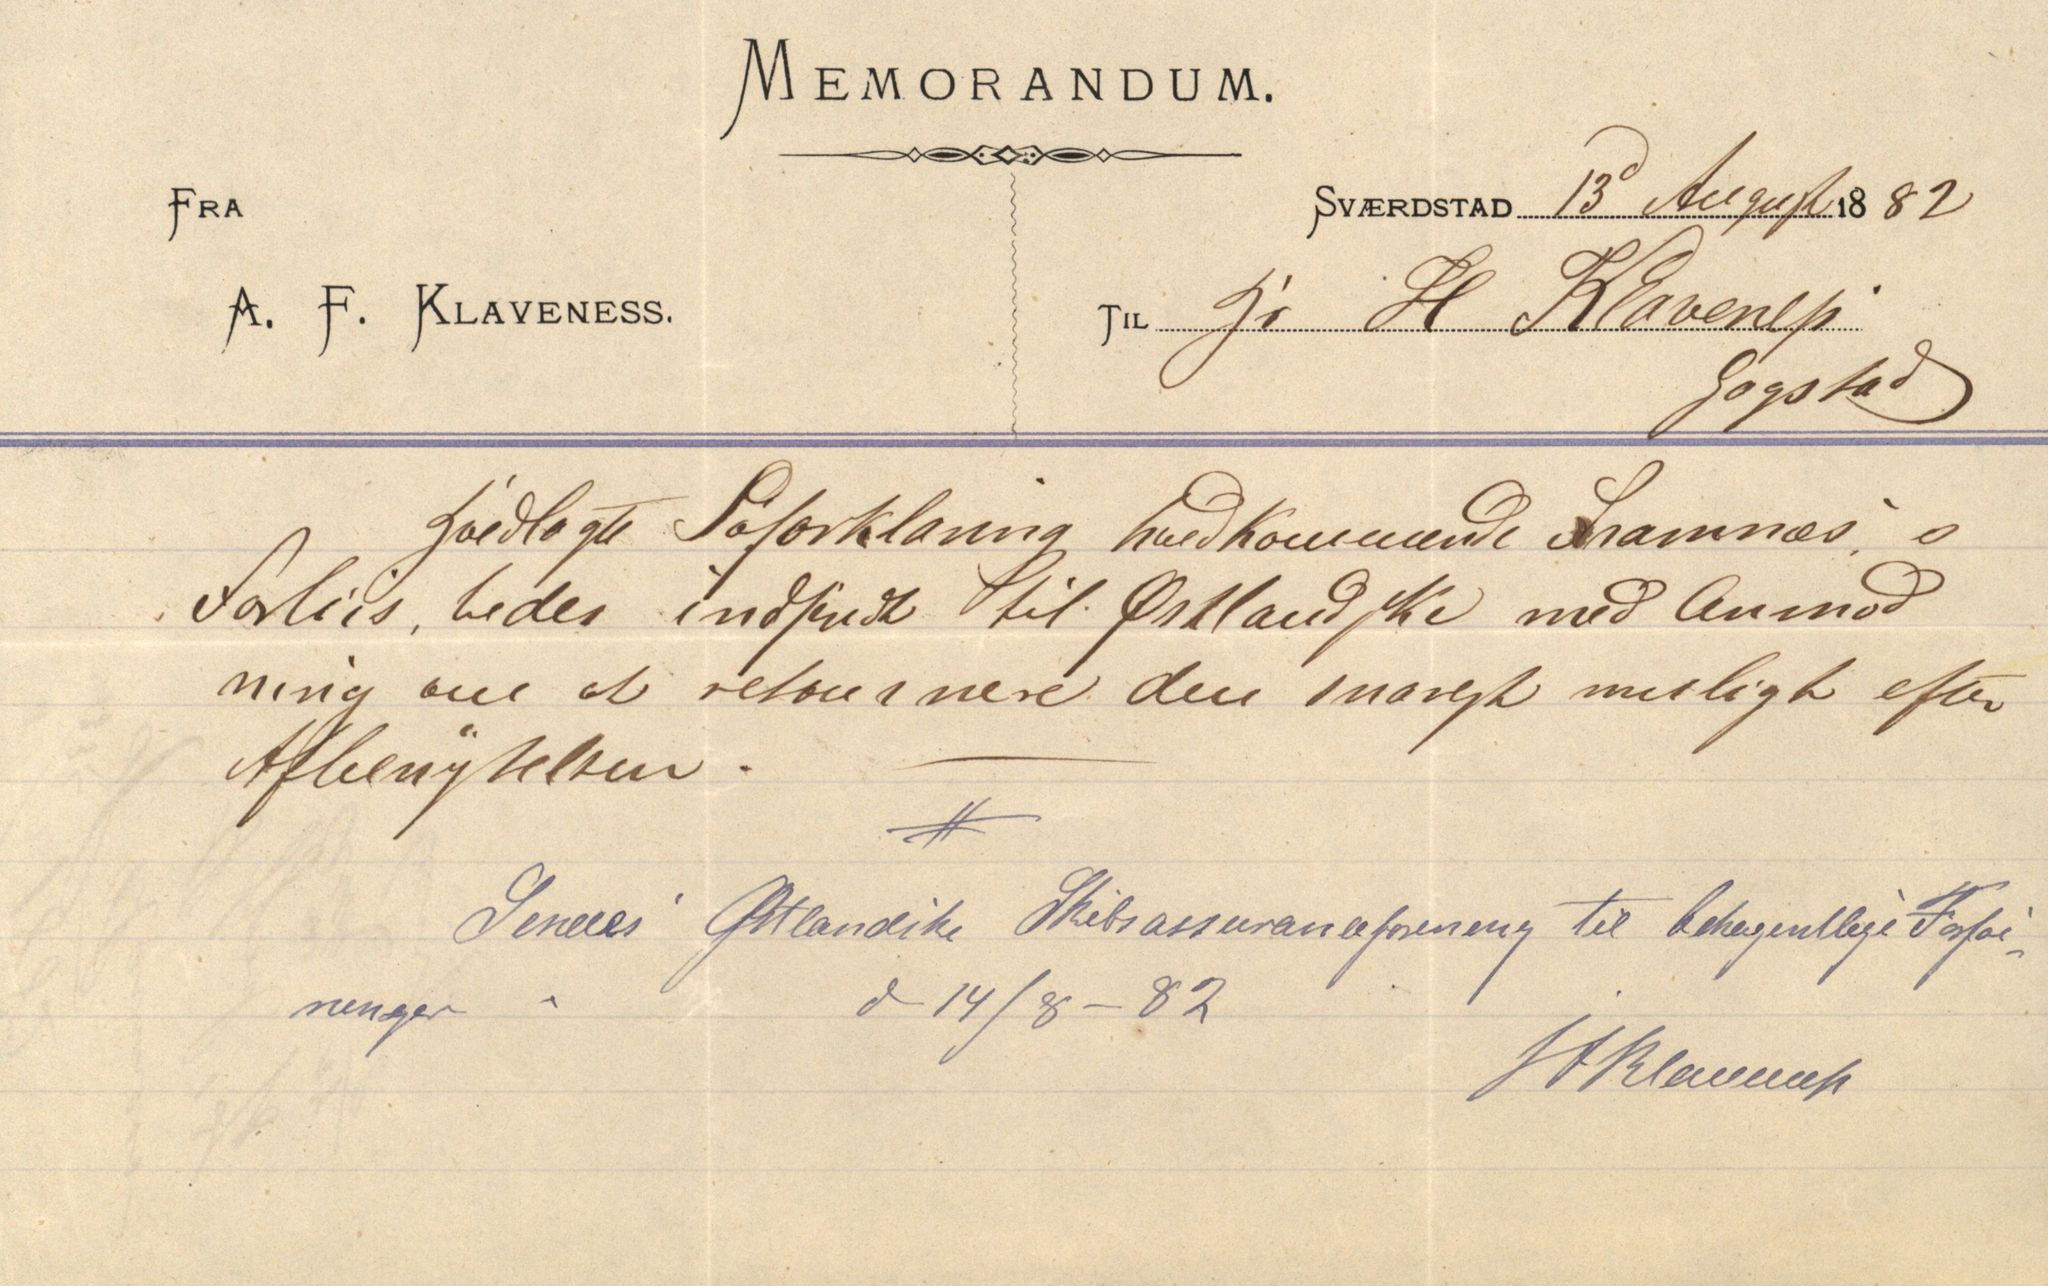 MEMORANDUM.
FRA
A. F. KLAVENESS.
SVÆRDSTAD 13d August 1882
TIL Hr H Klaveness
Gogstad
Hvedlagte Søforklaring hvedkommende Framnæs's
Forliis, bedes indsendt til Østlandske med Anmod
ning om at retournere den snarest muligt efter
Afbenÿtelsen.
Sendes Østlandske Skibsassuranceforening til behagentlige Forføi-
ninger
d 14/8-82
Klaveness